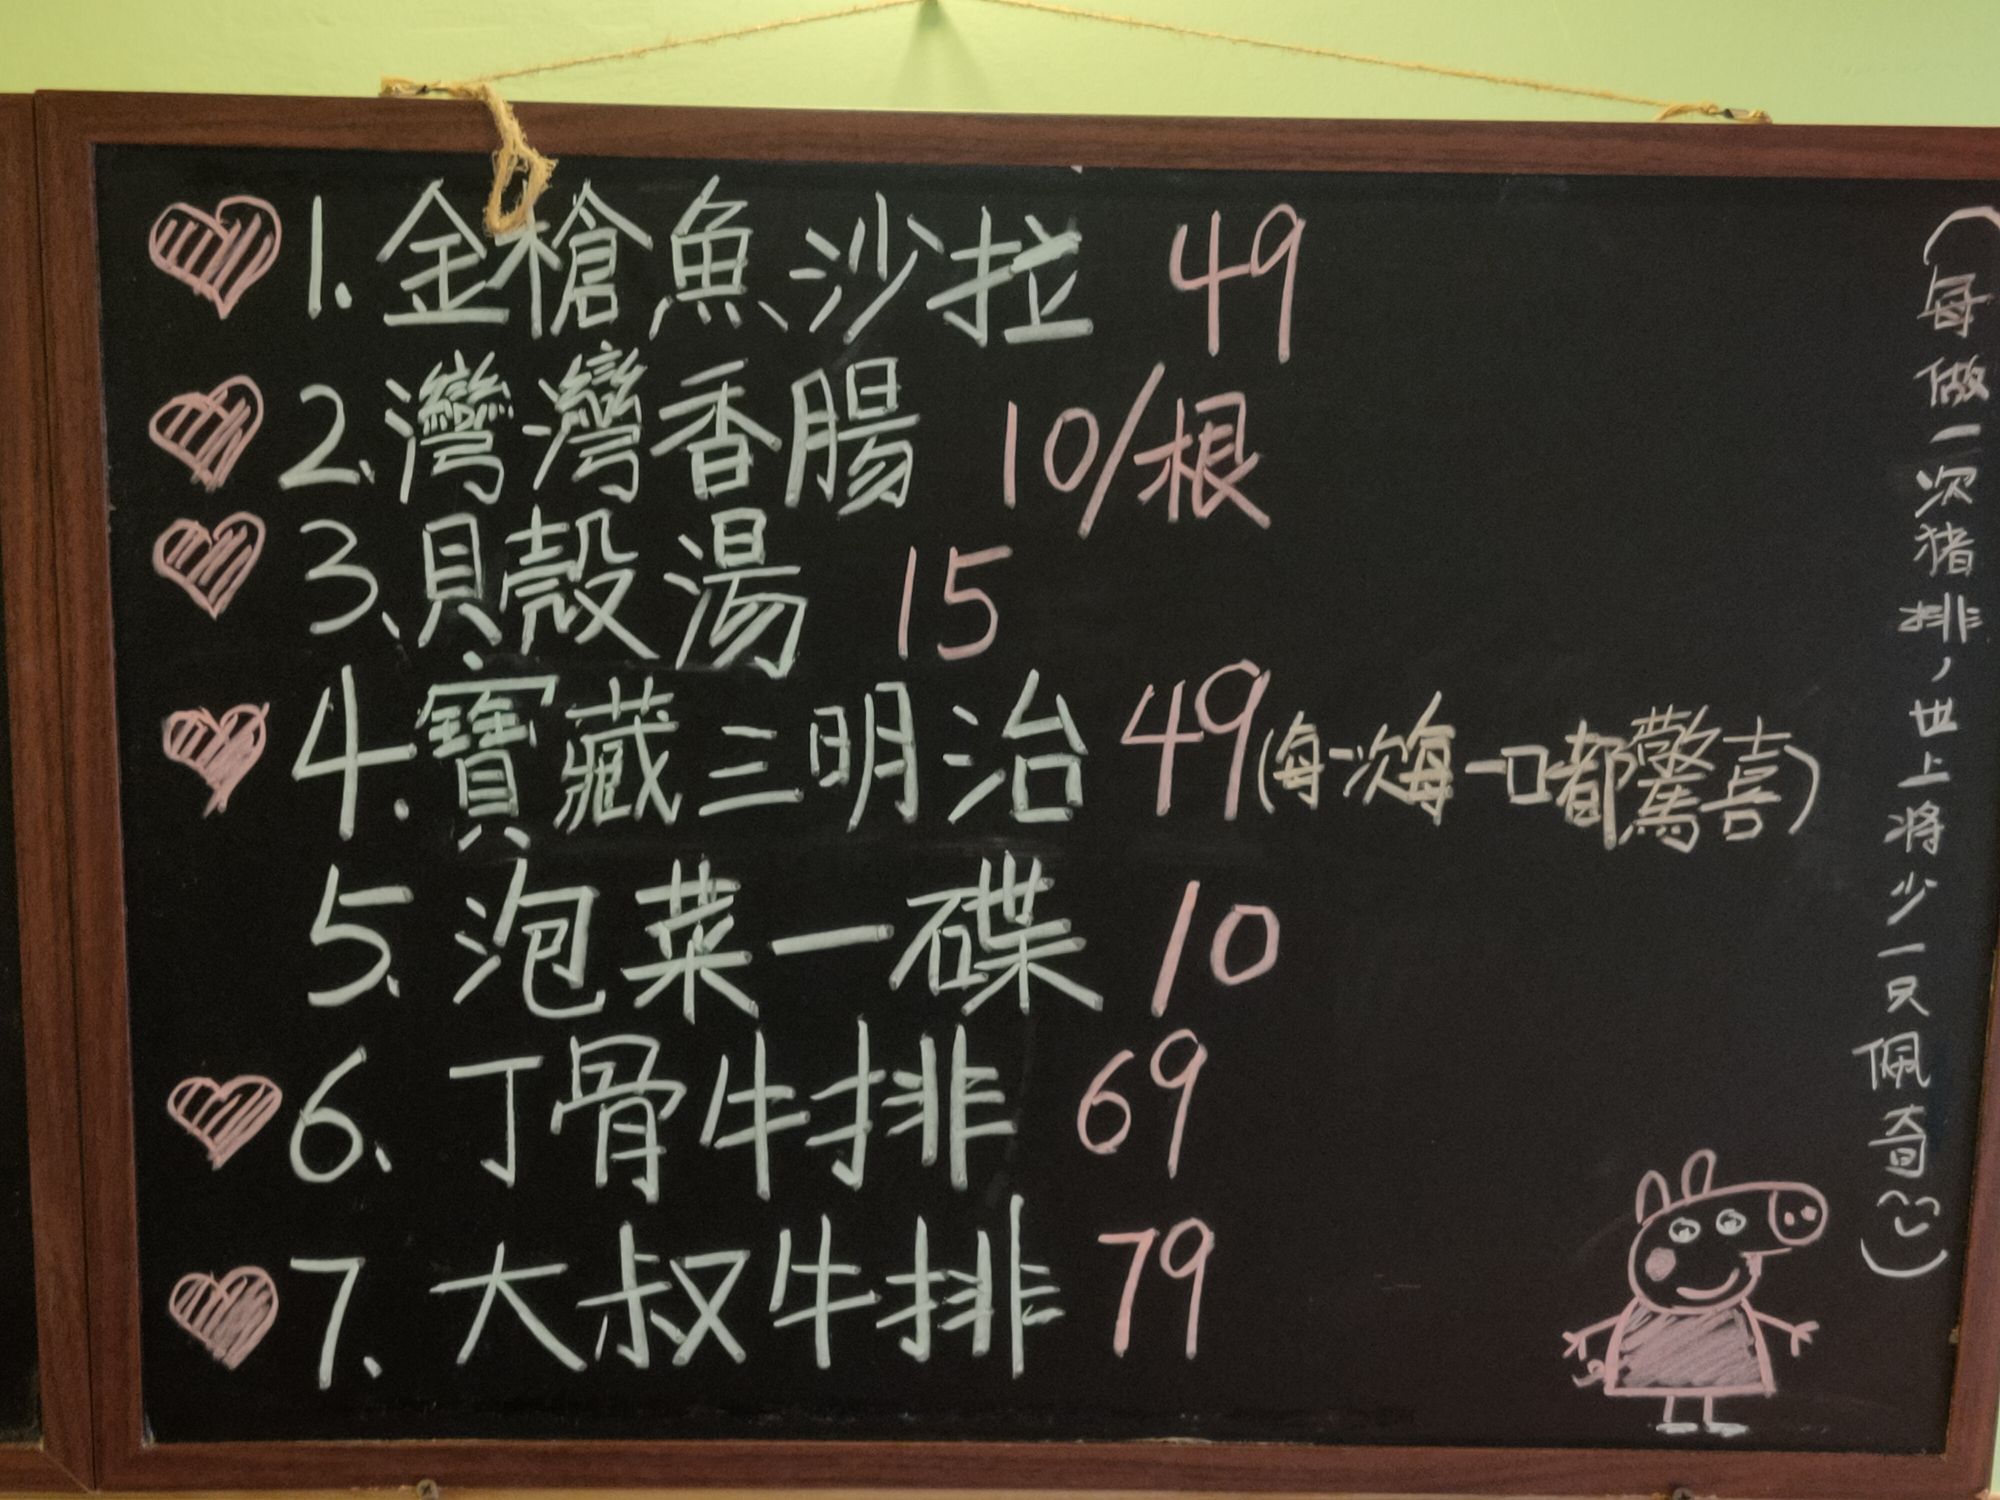 1.金槍魚沙拉 49
2.灣灣香腸 10/根
3.貝殼湯 15
4.寶藏三明治 49(每一次每一口都驚喜)
5.泡菜一碟 10
6.丁骨牛排 69
7.大叔牛排 79
(每做一次猪排，世上将少一只佩奇)